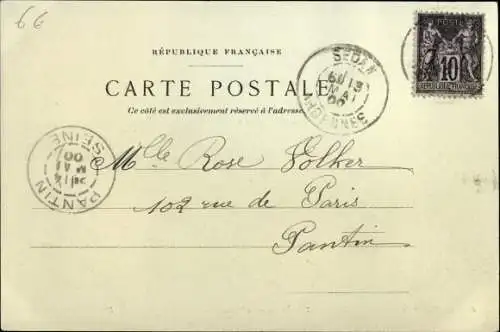 66
RÉPUBLIQUE FRANÇAISE
CARTE POSTALE
Ce côté est exclusivement réservé à l'adresse
SEDAN
13
MAI
00
ARDENNES
POSTE
10
RÉPUBLIQUE FRANÇAISE
Mlle Rose Volker
102 rue de Paris
Pantin
PANTIN
14
MAI
00
SEINE